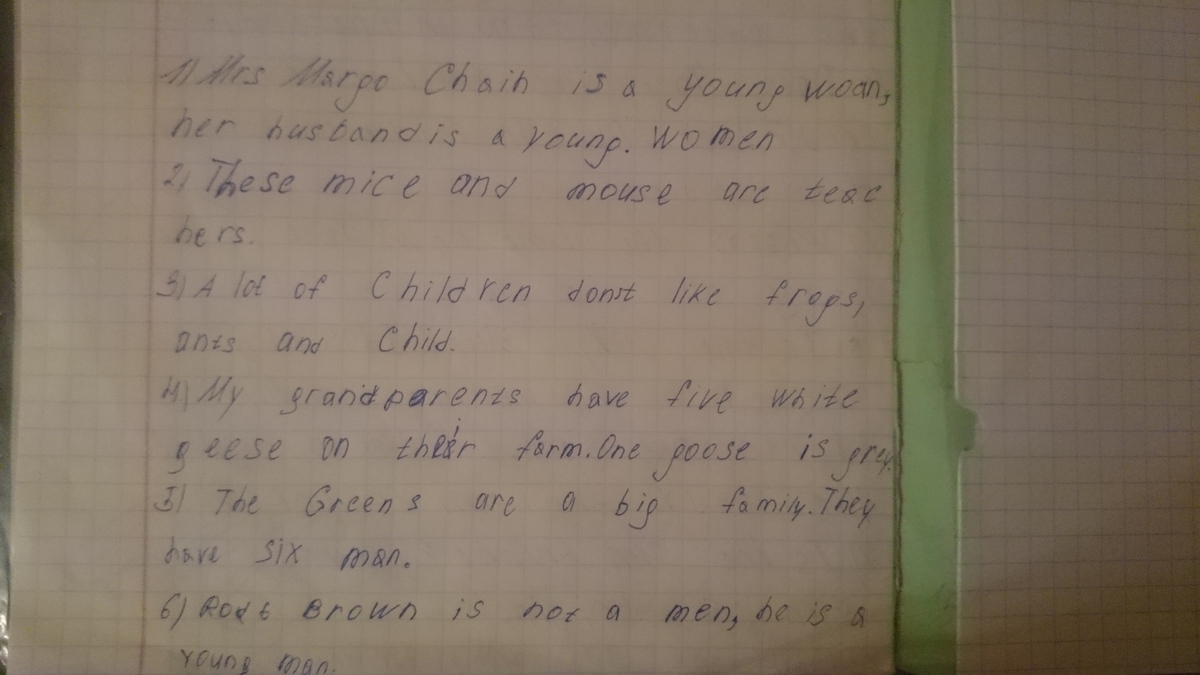 1) Mrs Margo Chain is a young woan,
her husband is a young. women
2) These mice and mouse are teac
hers.
3) A lot of Children donst like frogs,
ants and Child.
4) My grandparents have five white
geese on their farm. One goose is grey.
5) The Greens are a big family. They
have six man.
6) Brown is not a men, he is a
young man.